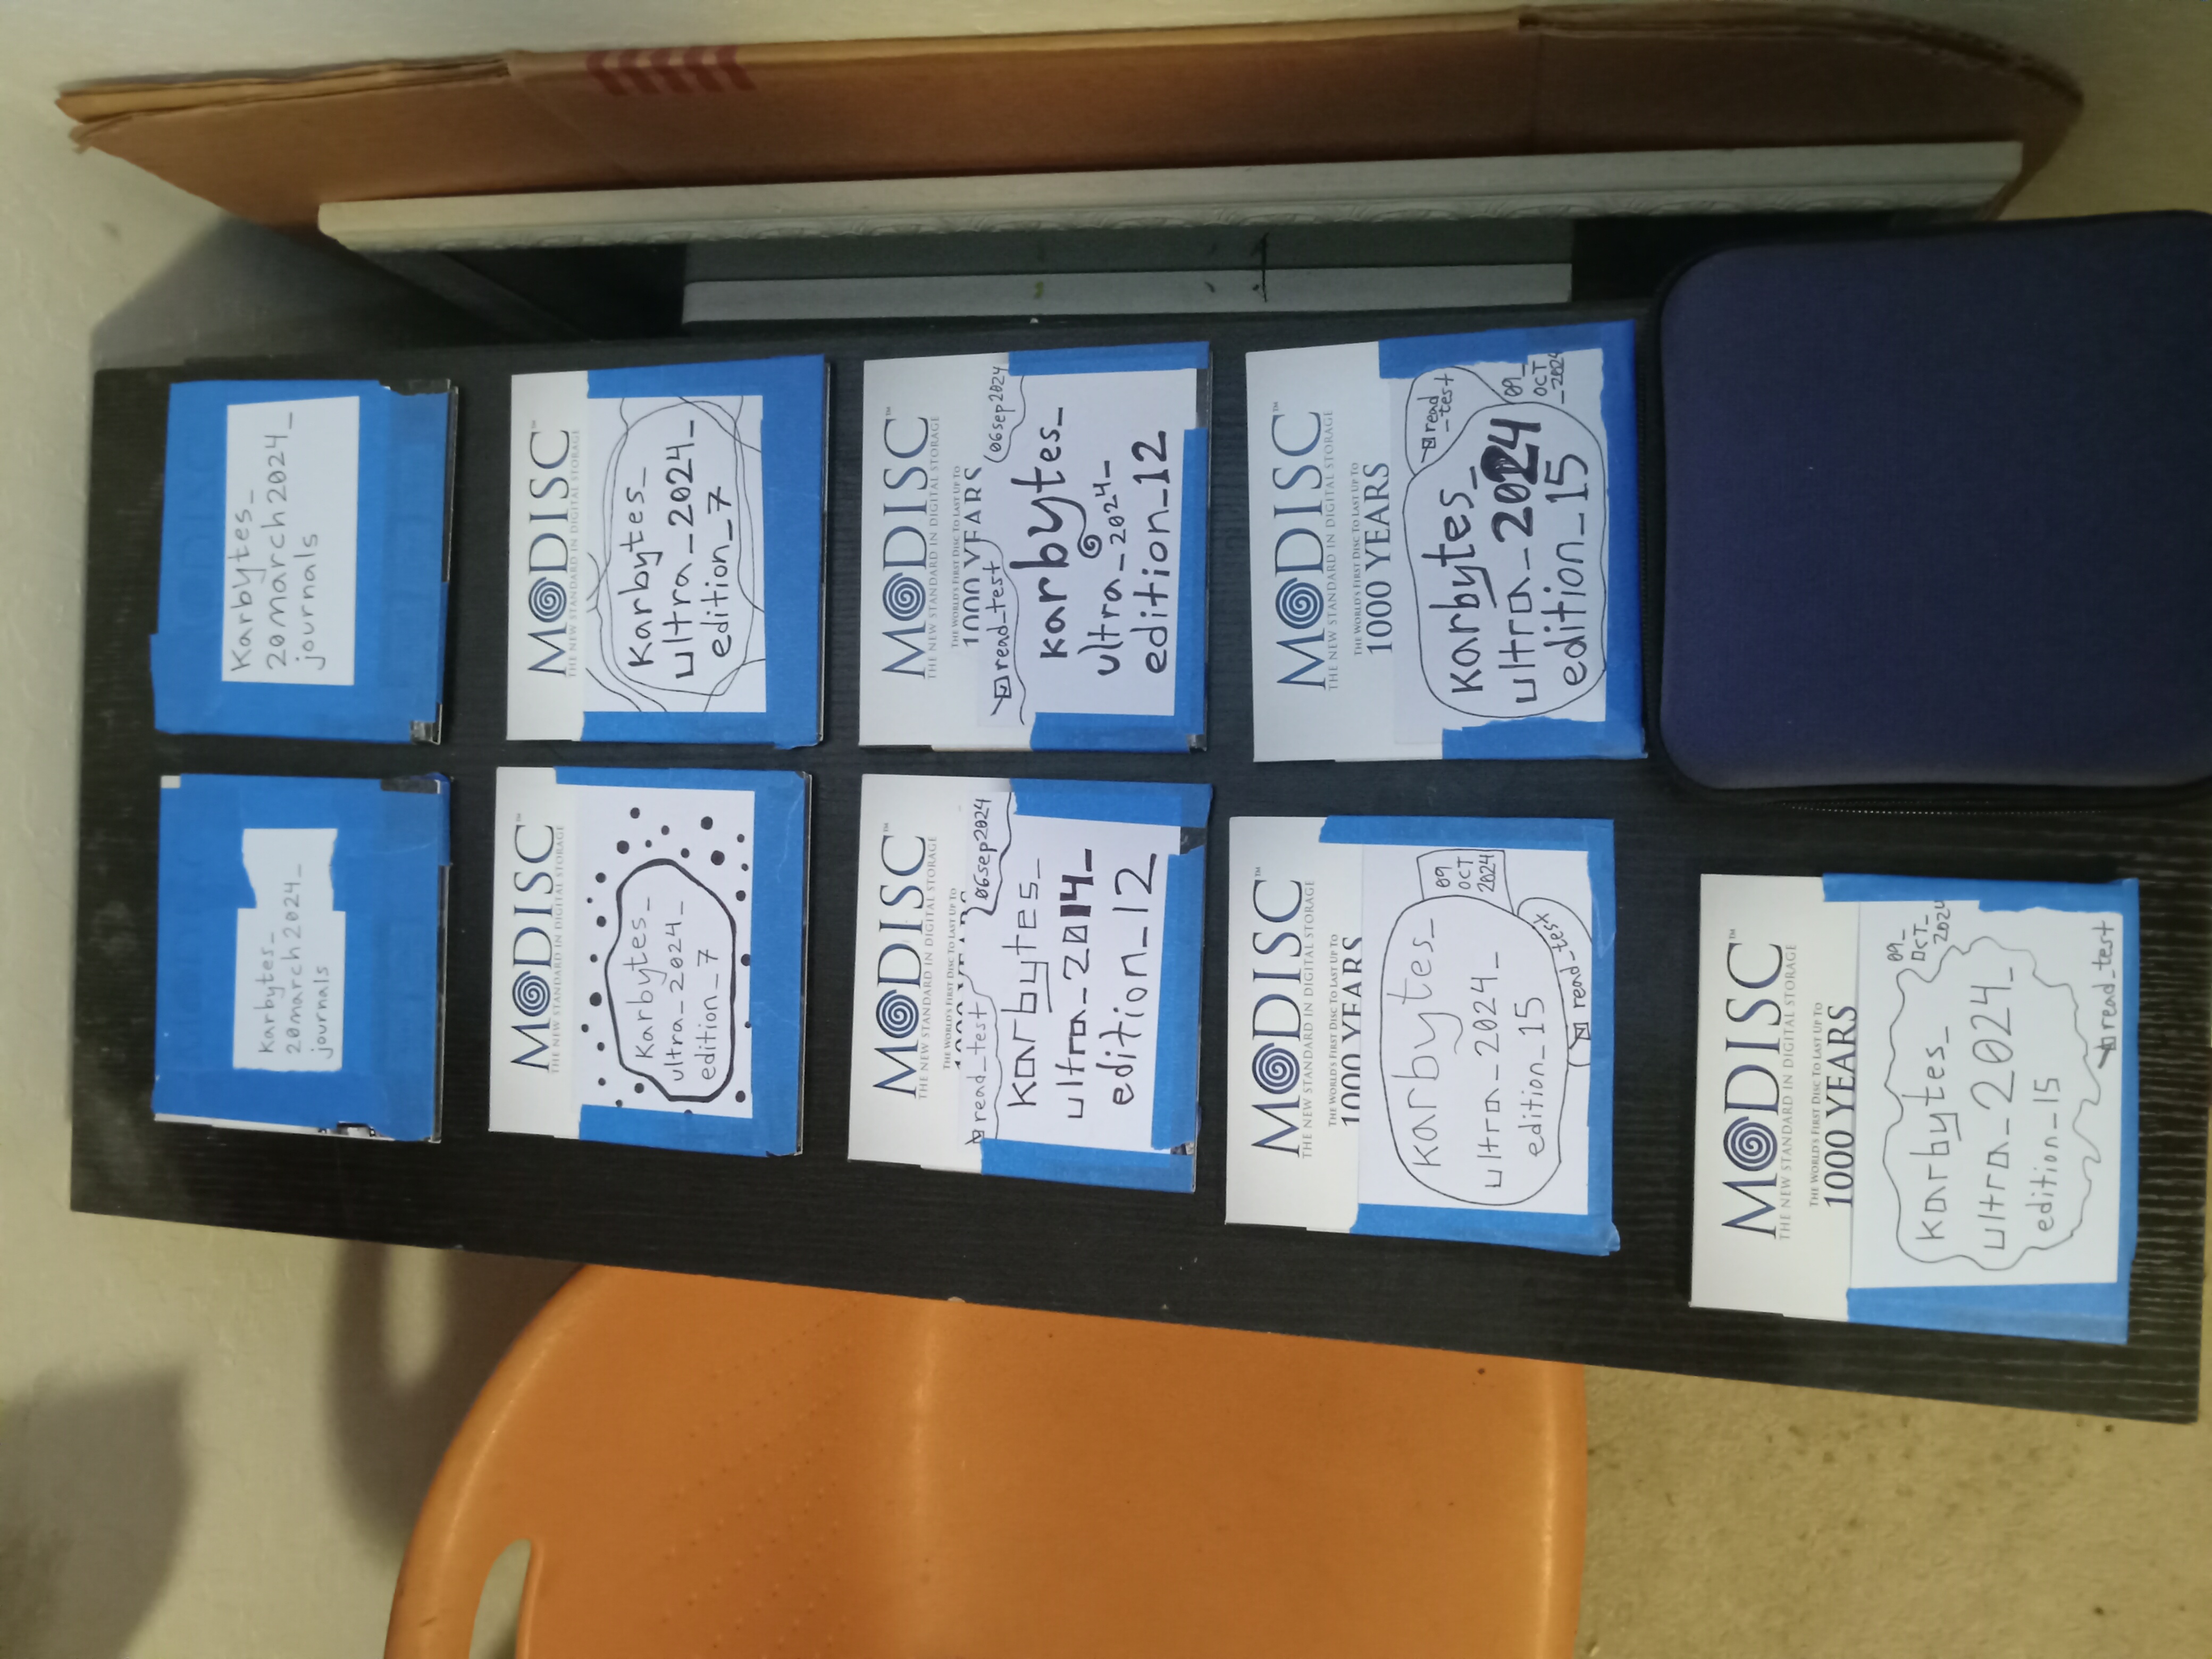 karbytes_
20march2024_
journals
Karbytes_
20march2024_
journals
MODISC™
THE NEW STANDARD IN DIGITAL STORAGE
karbytes_
ultra_2024_
edition_7
MODISC™
THE NEW STANDARD IN DIGITAL STORAGE
karbytes_
ultra_2024_
edition_7
MODISC™
THE NEW STANDARD IN DIGITAL STORAGE
THE WORLD'S FIRST DISC TO LAST UP TO
1000 YEARS
read_test
06sep2024
karbytes_
ultra_2014_
edition_12
MODISC™
THE NEW STANDARD IN DIGITAL STORAGE
THE WORLD'S FIRST DISC TO LAST UP TO
1000 YEARS
read_test
06sep2024
karbytes_
ultra_2024_
edition_12
MODISC™
THE NEW STANDARD IN DIGITAL STORAGE
THE WORLD'S FIRST DISC TO LAST UP TO
1000 YEARS
karbytes_
ultra_2024_
edition_15
09
OCT
2024
read_test
MODISC™
THE NEW STANDARD IN DIGITAL STORAGE
THE WORLD'S FIRST DISC TO LAST UP TO
1000 YEARS
karbytes_
ultra_2024
edition_15
read
_test
09_
OCT
_2024
MODISC™
THE NEW STANDARD IN DIGITAL STORAGE
THE WORLD'S FIRST DISC TO LAST UP TO
1000 YEARS
karbytes_
ultra_2024_
edition_15
09_
OCT_
2024
read_test